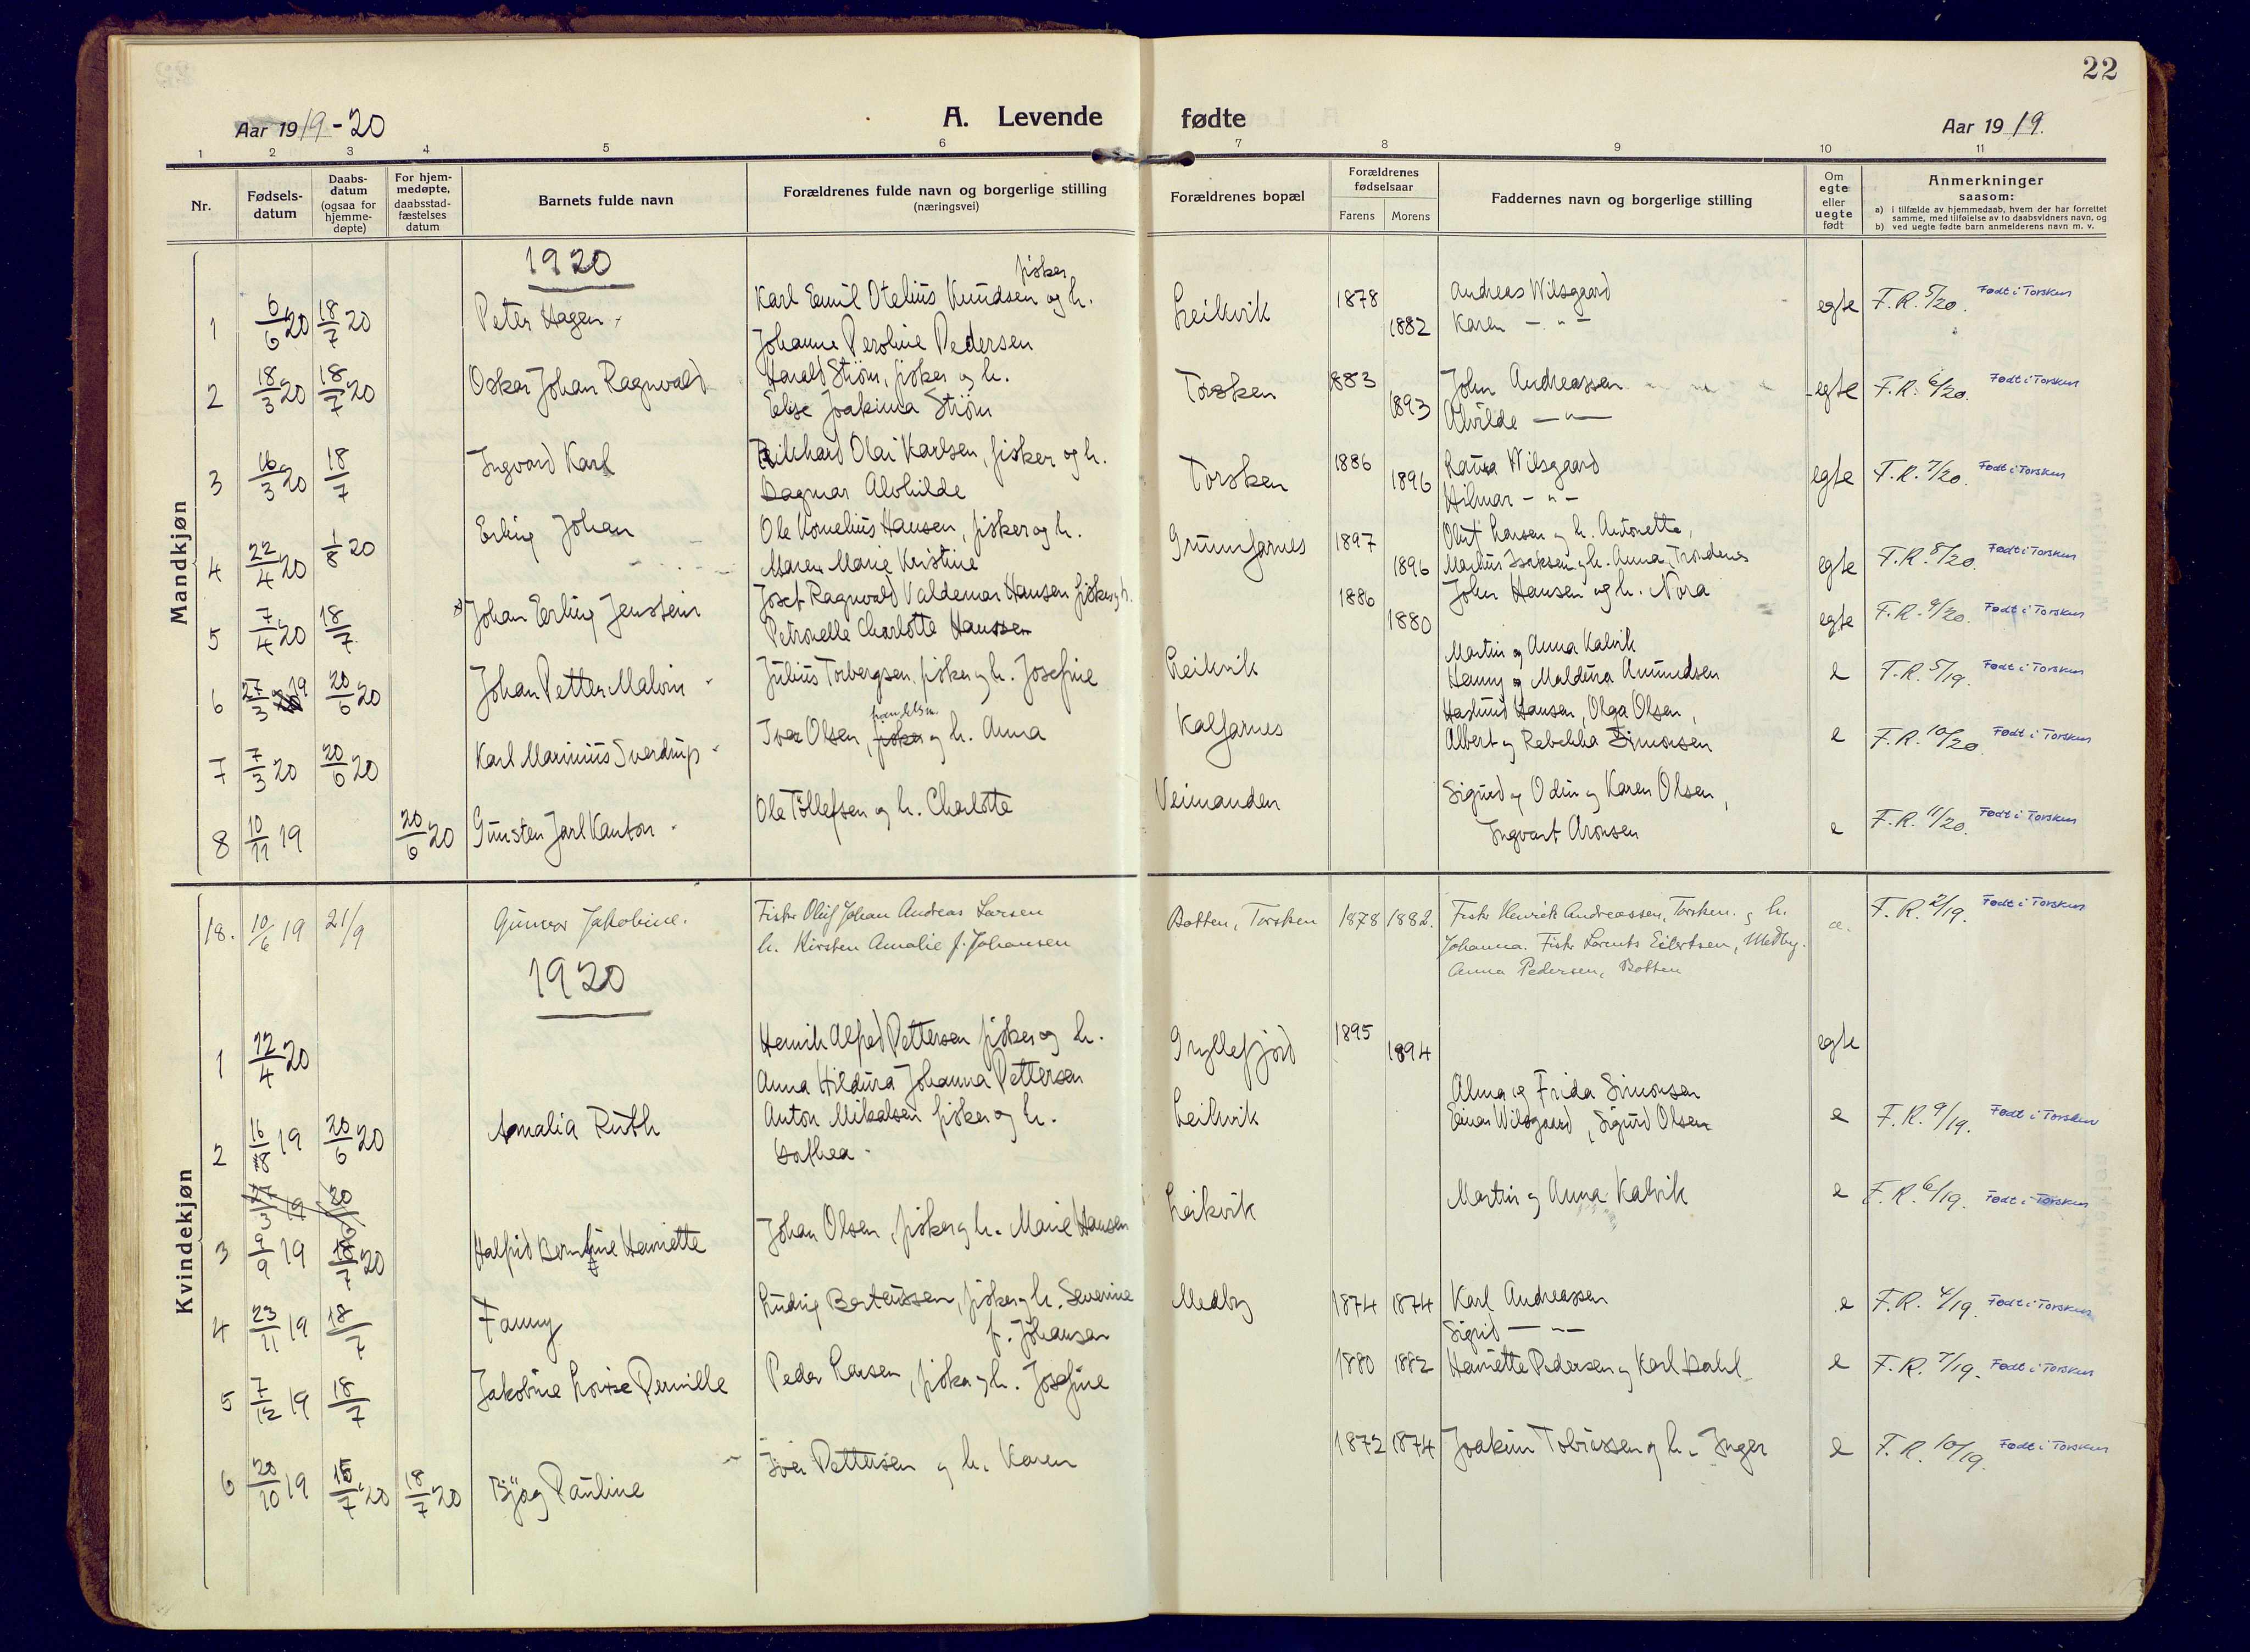 22
Aar 1919-20
A. Levende fødte
Aar 1919.
1 2 3 4 5 6 7 8 9 10 11
Nr.
Fødsels-
datum
Daabs-
datum
(ogsaa for
hjemme-
døpte)
For hjem-
medøpte,
daabsstad-
fæstelses
datum
Barnets fulde navn
Forældrenes fulde navn og borgerlige stilling
(næringsvei)
Forældrenes bopæl
Forældrenes
fødselsaar
Farens Morens
Faddernes navn og borgerlige stilling
Om
egte
eller
uegte
født
Anmerkninger
saasom:
a) i tilfælde av hjemmedaab, hvem der har forrettet
samme, med tilføielse av to daabsvidners navn, og
b) ved uegte fødte barn anmelderens navn m. v.
Mandkjøn
1920
1 6/6 20 18/7 20 Peter Hagen
Karl Emil Otelius Knudsen fisker og h.
Johanne Peroline Pedersen
Leikvik 1878 1882
Andreas Wilsgaard
Karen — " —
egte F.R. 5/20. Født i Torsken
2 18/3 20 18/7 20 Oskar Johan Ragnvald
Harald Strøm, fisker og h.
Elise Joakima Strøm
Torsken 1883 1893
John Andreassen
Alvilde — " —
egte F.R. 6/20. Født i Torsken
3 16/3 20 18/7 Ingvard Karl
Rikhard Olai Karlsen, fisker og h.
Dagmar Alvhilde
Torsken 1886 1896
Laura Wilsgaard
Hilmar — " —
egte F.R. 7/20. Født i Torsken
4 22/4 20 1/8 20 Erling Johan
Ole Kornelius Hansen, fisker og h.
Maren Marie Kristine
Grunnfarnes 1897 1896
Olut Larsen og h. Antonette,
Markus Isaksen og h. Anna, Trondenes
egte F.R. 8/20. Født i Torsken
5 7/4 20 18/7. Johan Erling Jenstein
Josef Ragnvald Valdemar Hansen fisker og h.
Petronelle Charlotte Hanssen
1886 1880
John Hansen og h. Nora
egte F.R. 9/20. Født i Torsken
6 27/3 19 20/6 20 Johan Petter Malvin
Julius Torbergsen, fisker og h. Josefine
Leikvik
Martin og Anna Kalvik
Henny og Maldura Amundsen
e F.R. 5/19. Født i Torsken
7 7/3 20 20/6 20 Karl Marinius Sverdrup
Iver Olsen, fisker handelsm. og h. Anna
Kalfarnes
Haslund Hansen, Olga Olsen,
Albert og Rebekka Simonsen
e F.R. 10/20. Født i Torsken
8 10/11 19 20/6 20 Gunsten Jarl Kanton
Ole Tollefsen og h. Charlotte
Veimanden
Sigurd og Odin og Karen Olsen,
Ingvart Aronsen
e F.R. 11/20. Født i Torsken
Kvindekjøn
18. 10/6 19 21/9 Gunvor Jakobine.
Fisker Oluf Johan Andreas Larsen
h. Kirsten Amalie f. Johansen
Botten, Torsken 1878 1882.
Fisker Henrik Andreassen, Torsken. og h.
Johanna. Fisker Lorents Eilertsen, Medby.
Anna Pedersen, Botten
F.R. 2/19. Født i Torsken
1920
1 12/4 20
Henrik Alfred Pettersen fisker og h.
Anna Hildura Johanna Pettersen
Gryllefjord 1895 1894
egte
2 16/8 19 20/6 20 Amalia Ruth
Anton Mikalsen fisker og h.
Dorthea
Leikvik
Alma og Frida Simonsen
Einar Wilsgaard, Sigurd Olsen
e F.R. 9/19. Født i Torsken
27/3 19 20/6
3 9/9 19 18/7 20 Halfrid Berntine Henriette
Johan Olsen, fisker og h. Marie Hansen
Leikvik
Martin og Anna Kalvik
e F.R. 6/19. Født i Torsken
4 23/11 19 18/7 Fanny
Ludvig Berteussen, fisker og h. Severine
f. Johansen
Medby 1874 1874
Karl Andreassen
Sigrid — " —
e F.R. 4/19. Født i Torsken
5 7/12 19 18/7 Jakobine Lovise Pernille
Peder Larsen, fisker og h. Josefine
1880 1882
Henriette Pedersen og Karl Dahl
e F.R. 7/19. Født i Torsken
6 20/10 19 18/7 20 18/7 20 Bjøg Pauline
Iver Pettersen og h. Karen
1872 1874
Joakim Tobiassen og h. Inger
e F.R. 10/19. Født i Torsken